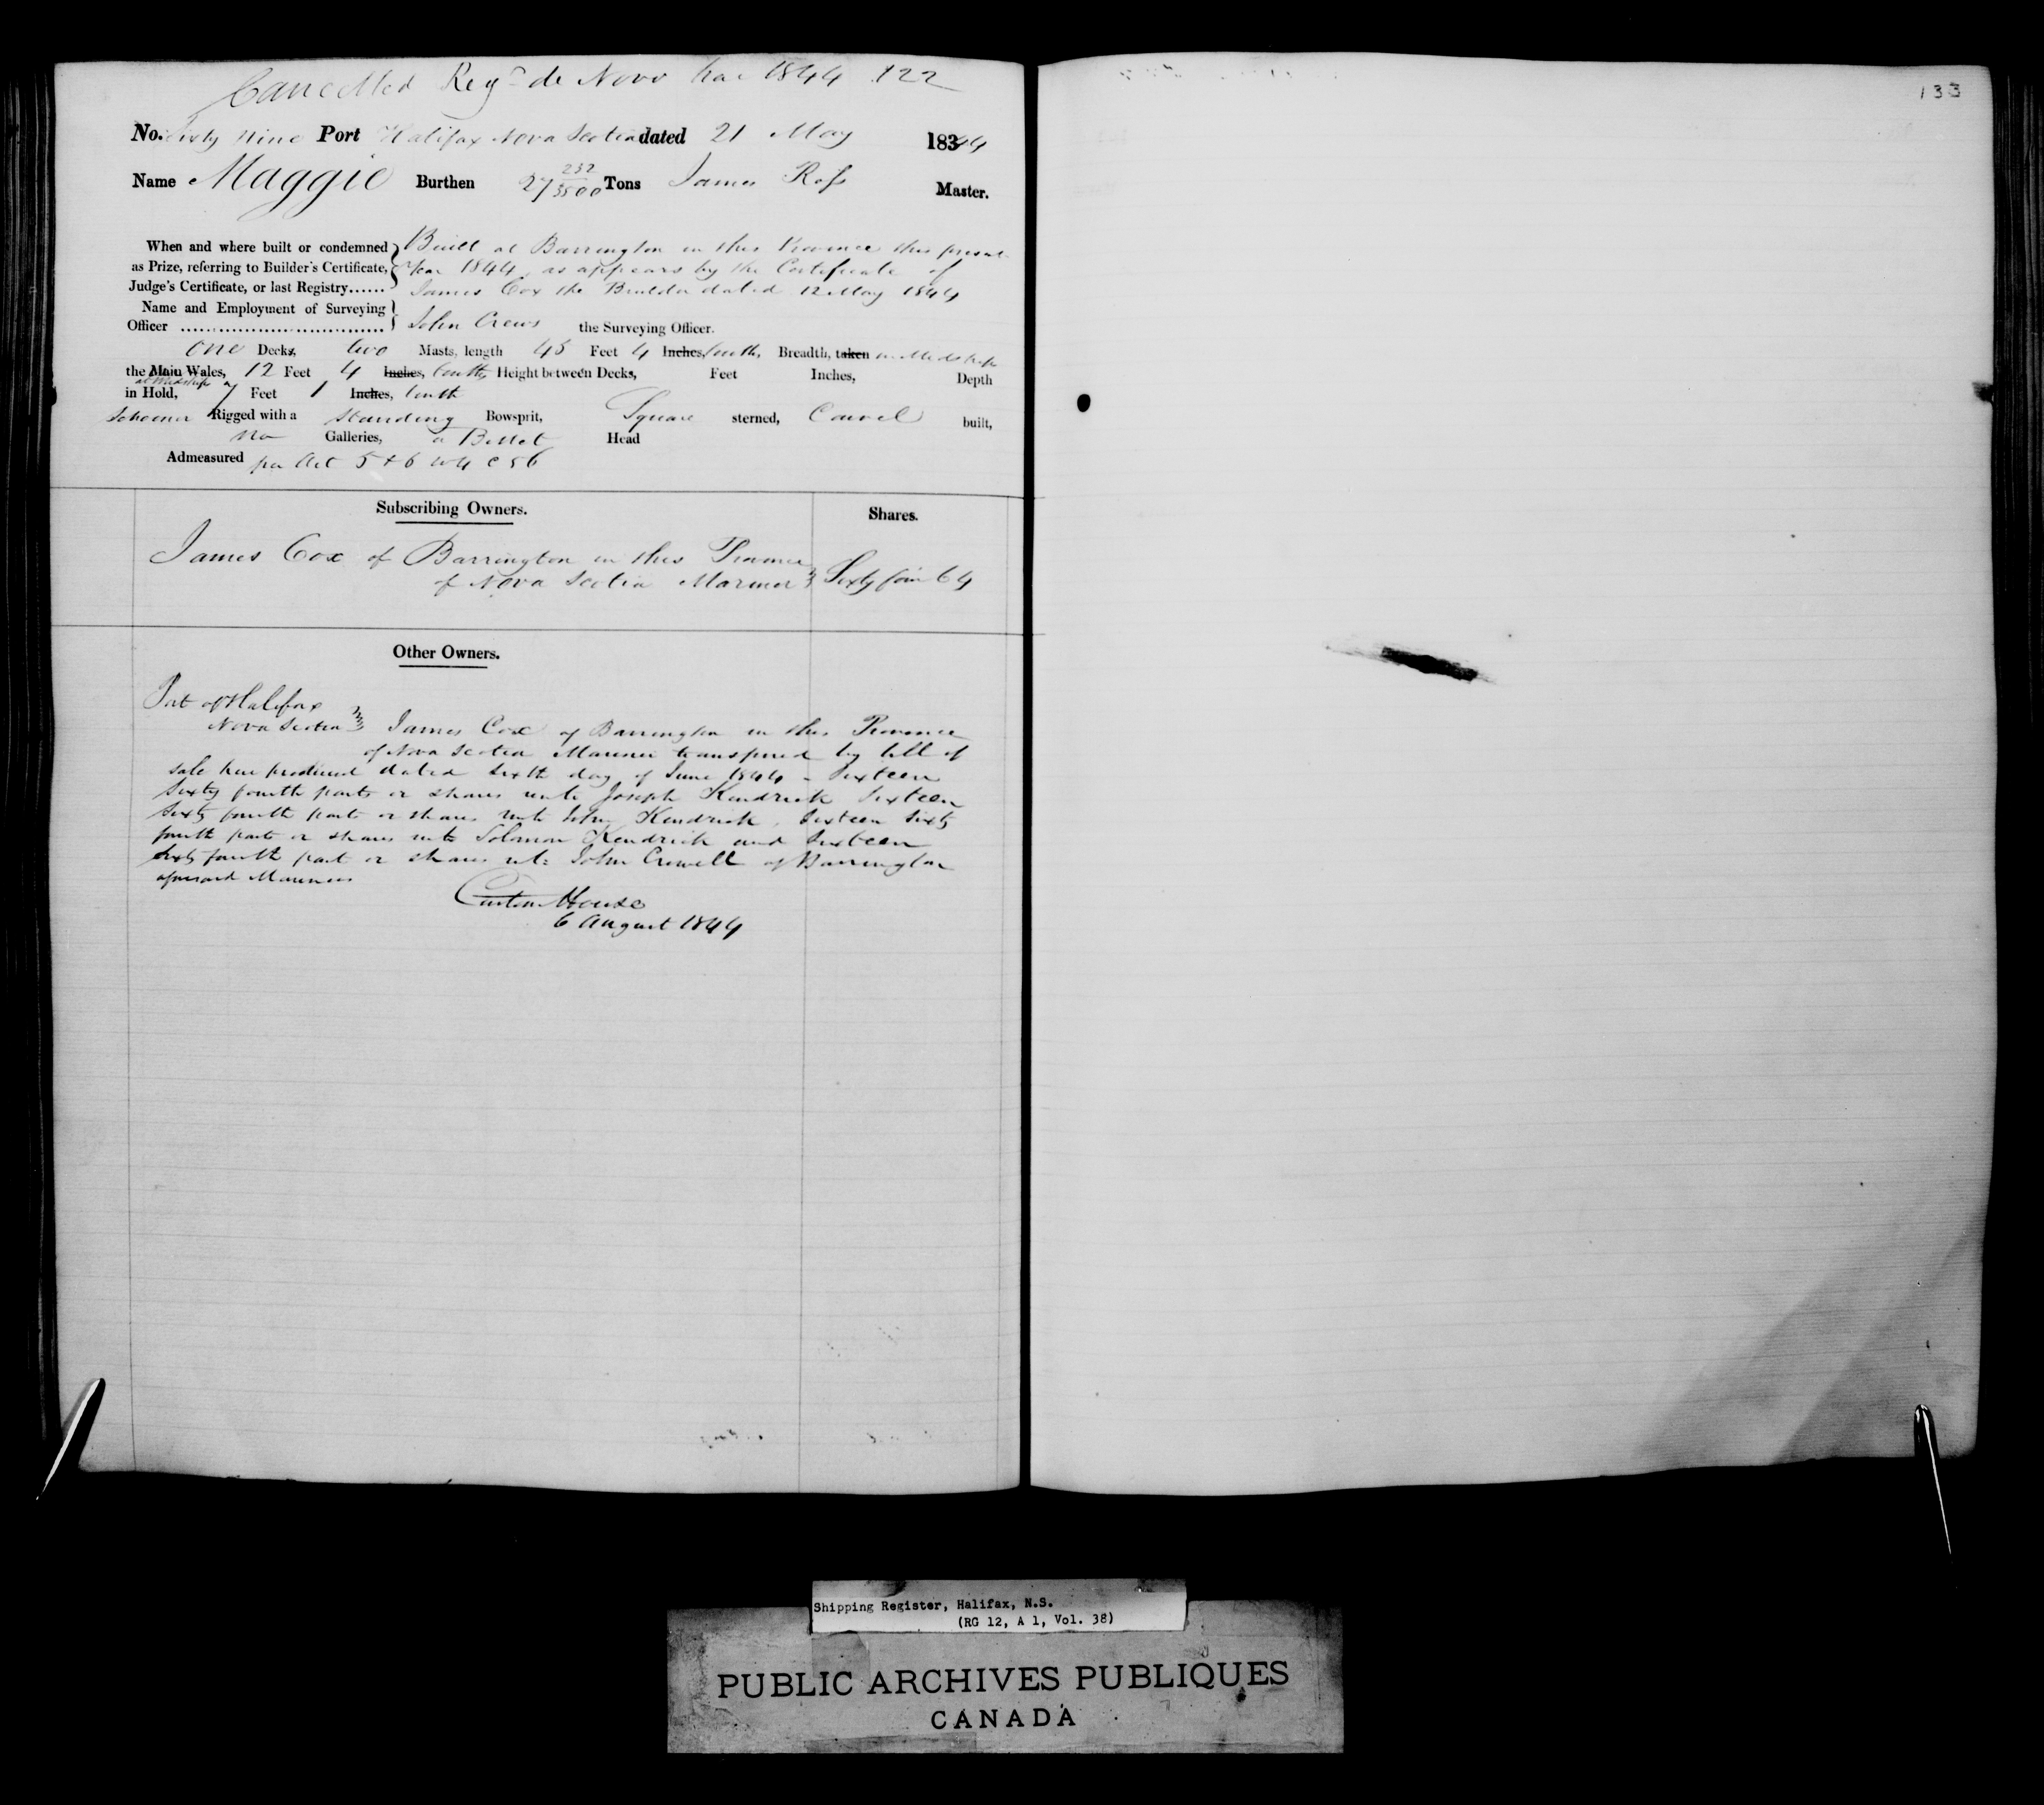 Cancelled Reg de Novo 1844 122
133
No. Sixty Nine Port Halifax Nova Scotia dated 21 May 18344
Name Maggie Burthen 27 232/3500 Tons James Ross Master.
When and where built or condemned } Built at Barrington in this Province this present
as Prize, referring to Builder's Certificate, Year 1844, as appears by the Certificate of
Judge's Certificate, or last Registry...... James Cox the Builder dated 12 May 1844
Name and Employment of Surveying }
Officer .................................. John Crews the Surveying Officer.
One Decks, two Masts, length 45 Feet 4 Inches, tenths, Breadth, taken in Midships
the Main Wales, 12 Feet 4 Inches, tenths, Height between Decks, Feet Inches, Depth
in Hold, at Midships 7 Feet 1 Inches, tenth
Schooner Rigged with a standing Bowsprit, Square sterned, Carvel built,
no Galleries, a Billet Head
Admeasured per Act 5 & 6 W 4 C 56
Subscribing Owners. Shares.
James Cox of Barrington in this Province
of Nova Scotia Mariner } Sixty four 64
Other Owners.
Port of Halifax
Nova Scotia } James Cox of Barrington in this Province
of Nova Scotia Mariner transferred by bill of
sale here produced dated Sixth day of June 1844 - Sixteen
Sixty fourth parts or shares unto Joseph Kendrick Sixteen
Sixty fourth parts or shares unto John Kendrick, Sixteen Sixty
fourth parts or shares unto Solomon Kendrick and Sixteen
Sixty fourth parts or shares unto John Crowell of Barrington
aforesaid Mariners
Custom House
6 August 1844
Shipping Register, Halifax, N.S.
(RG 12, A 1, Vol. 38)
PUBLIC ARCHIVES PUBLIQUES
CANADA